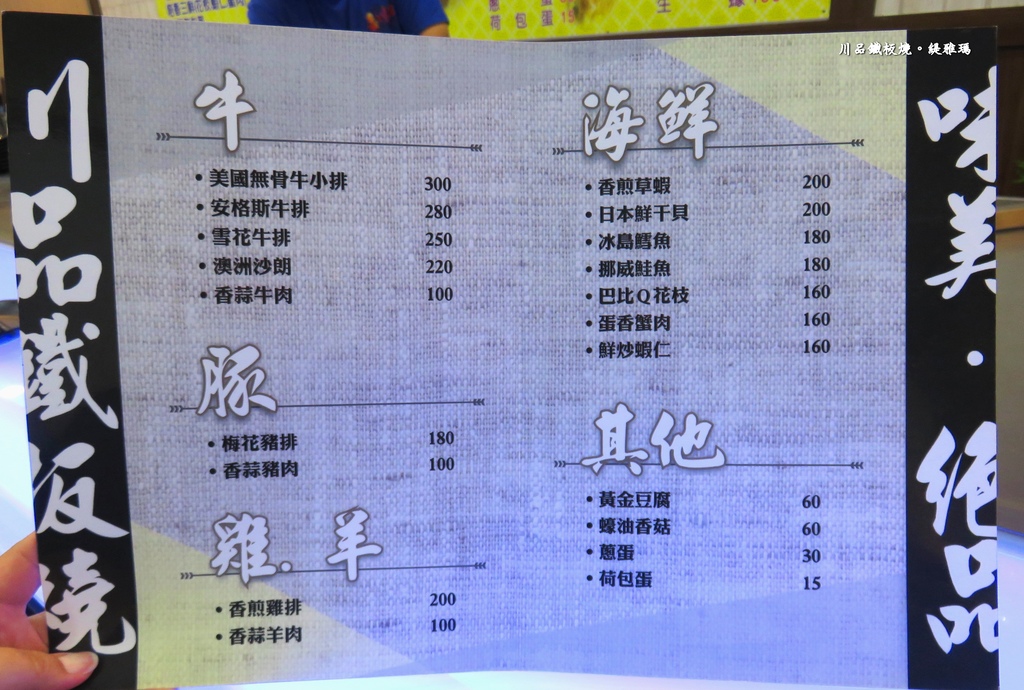 川品鐵板燒
川品鐵板燒。緹雅瑪
牛
•美國無骨牛小排 300
•安格斯牛排 280
•雪花牛排 250
•澳洲沙朗 220
•香蒜牛肉 100
豚
•梅花豬排 180
•香蒜豬肉 100
雞.羊
•香煎雞排 200
•香蒜羊肉 100
海鮮
•香煎草蝦 200
•日本鮮干貝 200
•冰島鱈魚 180
•挪威鮭魚 180
•巴比Q花枝 160
•蛋香蟹肉 160
•鮮炒蝦仁 160
其他
•黃金豆腐 60
•蠔油香菇 60
•蔥蛋 30
•荷包蛋 15
味美.絕品
荷包蛋 15
生